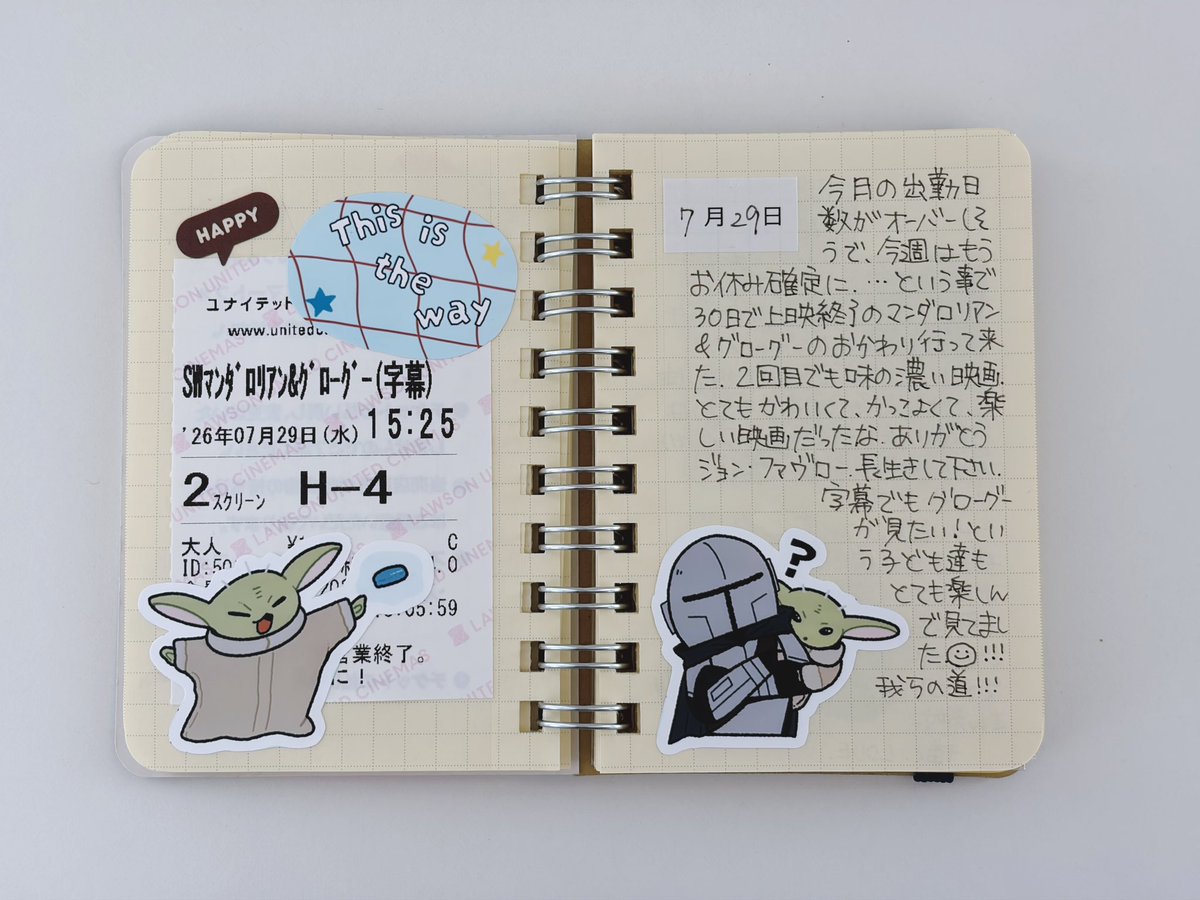 HAPPY
This is
the
way
ユナイテット
www.unitedc
SWマンダロリアン&グローグー(字幕)
'26年07月29日(水) 15:25
2スクリーン H-4
大人 C
ID:50
05:59
営業終了。
に!
LAWSON UNITED CINEMAS
7月29日
今月の出勤日
数がオーバーしそ
うで、今週はもう
お休み確定に.…という事で
30日で上映終了のマンダロリアン
&グローグーのおかわり行って来
た.2回目でも味の濃い映画.
とてもかわいくて、かっこよくて、楽
しい映画だったな.ありがとう
ジョン・ファヴロー.長生きして下さい.
字幕でもグローグー
が見たい!とい
う子ども達も
とても楽しん
で見てまし
た.!!!
我らの道!!!
?